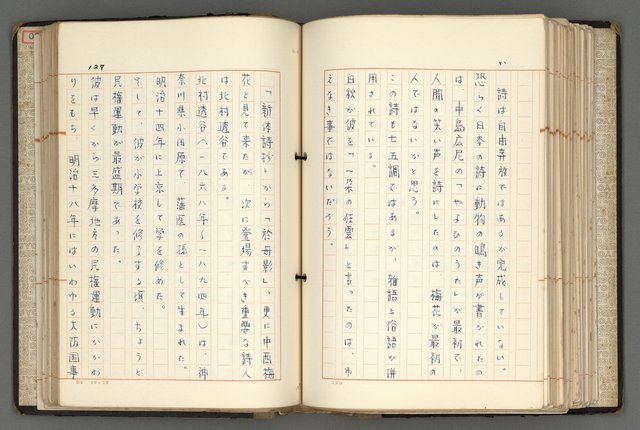 詩は自由奔放ではあるが完成していない。
恐らく日本の詩に動物の鳴き声が書かれたの
は、中島広尼の「やよひのうた」が最初で、
人間の笑い声を詩にしたのは、梅花が最初の
人ではないかと思う。
この詩も七五調ではあるが、雅語と俗語が併
用されている。
白秋が彼を「一朶の狂雲」と言ったのは、ゆ
えなき事ではないだろう。
127
「新体詩抄」から「於母影」、更に中西梅
花と見て来たが、次に登場すべき重要な詩人
は北村透谷である。
北村透谷（一八六八年～一八九四年）は、神
奈川県小田原で、藩医の孫として生まれた。
明治十四年に上京して学を修めた。
そして、彼が小学校を修了する頃、ちょうど
民権運動が最盛期であった。
彼は早くから三多摩地方の民権運動にかかわ
りをもち、明治十八年にはいわゆる大阪国事